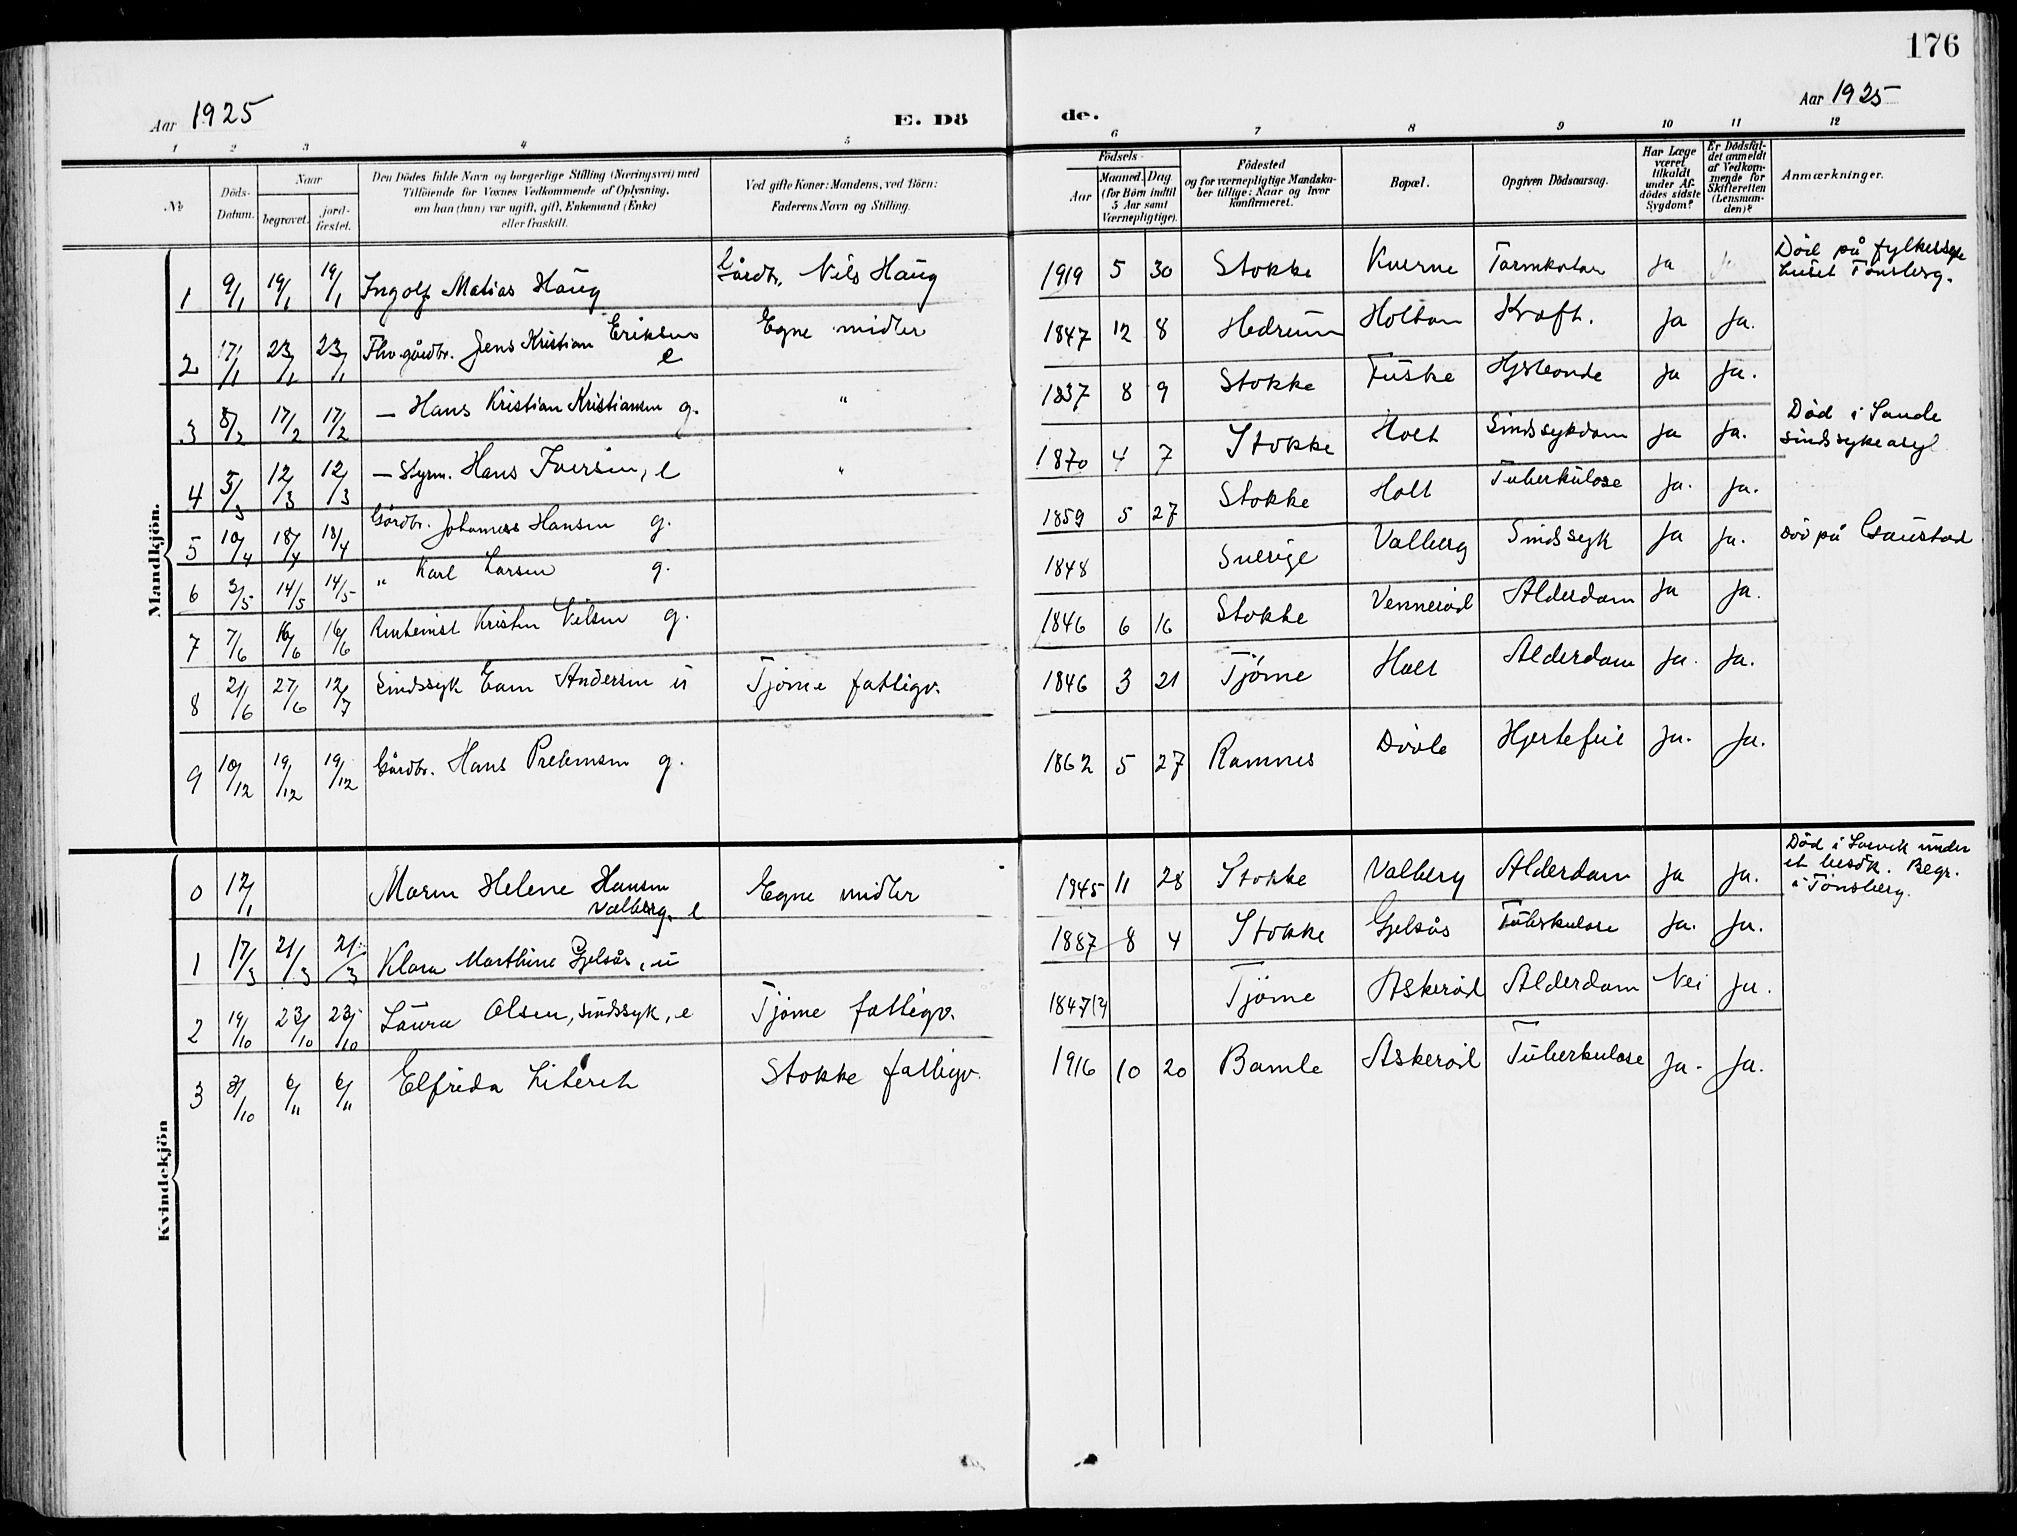 176
Aar 1925
E. Dö
de.
Aar 1925
1 2 3 4 5 6 7 8 9 10 11 12
№
Döds-
Datum.
Naar
begravet.
jord-
fæstet.
Den Dödes fulde Navn og borgerlige Stilling (Næringsvei) med
Tilföiende for Voxnes Vedkommende af Oplysning,
om han (hun) var ugift, gift, Enkemand (Enke)
eller fraskilt.
Ved gifte Koner: Mandens, ved Börn:
Faderens Navn og Stilling.
Födsels-
Aar
Maaned. Dag.
(for Börn indtil
5 Aar samt
Værnepligtige).
Födested
og for værnepligtige Mandska-
ber tillige: Naar og hvor
konfirmeret.
Bopæl.
Opgiven Dödsaarsag.
Har Læge
været
tilkaldt
under Af-
dödes sidste
Sygdom?
Er Dödsfal-
det anmeldt
af Vedkom-
mende for
Skifteretten
(Lensman-
den)?
Anmærkninger.
Mandkjön.
1 9/1 19/1 19/1 Ingolf Matias Haug Gårdbr. Nils Haug 1919 5 30 Stokke Kverne Tarmkatar ja ja Död på fylkessyke
huset Tönsberg.
2 17/1 23/1 23/1 Fhv. gårdbr. Jens Kristian Eriksen e Egne midler 1847 12 8 Hedrum Holtan Kræft. ja ja.
3 8/2 17/2 17/2 — Hans Kristian Kristiansen g. " 1837 8 9 Stokke Fuske ja ja.
4 5/3 12/3 12/3 — Styrm. Hans Iversen, e " 1870 4 7 Stokke Holt Sindssykdom ja ja. Död i Sande
sindssykeasyl
5 10/4 18/4 18/4 Gårdbr. Johannes Hansen g. 1859 5 27 Stokke Holt Tuberkulose ja. ja.
6 3/5 14/5 14/5 " Karl Larsen g. 1848 Sverige Valberg Sindssyk ja ja. Död på Gaustad
7 7/6 16/6 16/6 Rentenist Kristen Nilsen g. 1846 6 16 Stokke Vennerød Alderdom ja ja.
8 21/6 27/6 12/7 Sindssyk Even Andersen u Tjøme fattigv. 1846 3 21 Tjøme Holt Alderdom ja. ja.
9 10/12 19/12 19/12 Gårdbr. Hans g. 1862 5 27 Ramnes Døvle Hjertefeil ja. ja.
Kvindekjön
0 12/1 Maren Helene Hansen
Valberg. e Egne midler 1945 11 28 Stokke Valberg Alderdom ja ja. Død i Larvik under
et besøk. Begr.
i Tönsberg.
1 17/3 21/3 21/3 Klara Marthine Gjelsås, u 1887 8 4 Stokke Gjelsås Tuberkulose ja. ja.
2 19/10 23/10 23/10 Laura Olsen, sindssyk, e Tjøme fattigv. 1847(?) Tjøme Askerød Alderdom Nei ja.
3 31/10 6/11 6/11 Elfrida Stokke fattigv. 1916 10 20 Bamle Askerød Tuberkulose ja. ja.